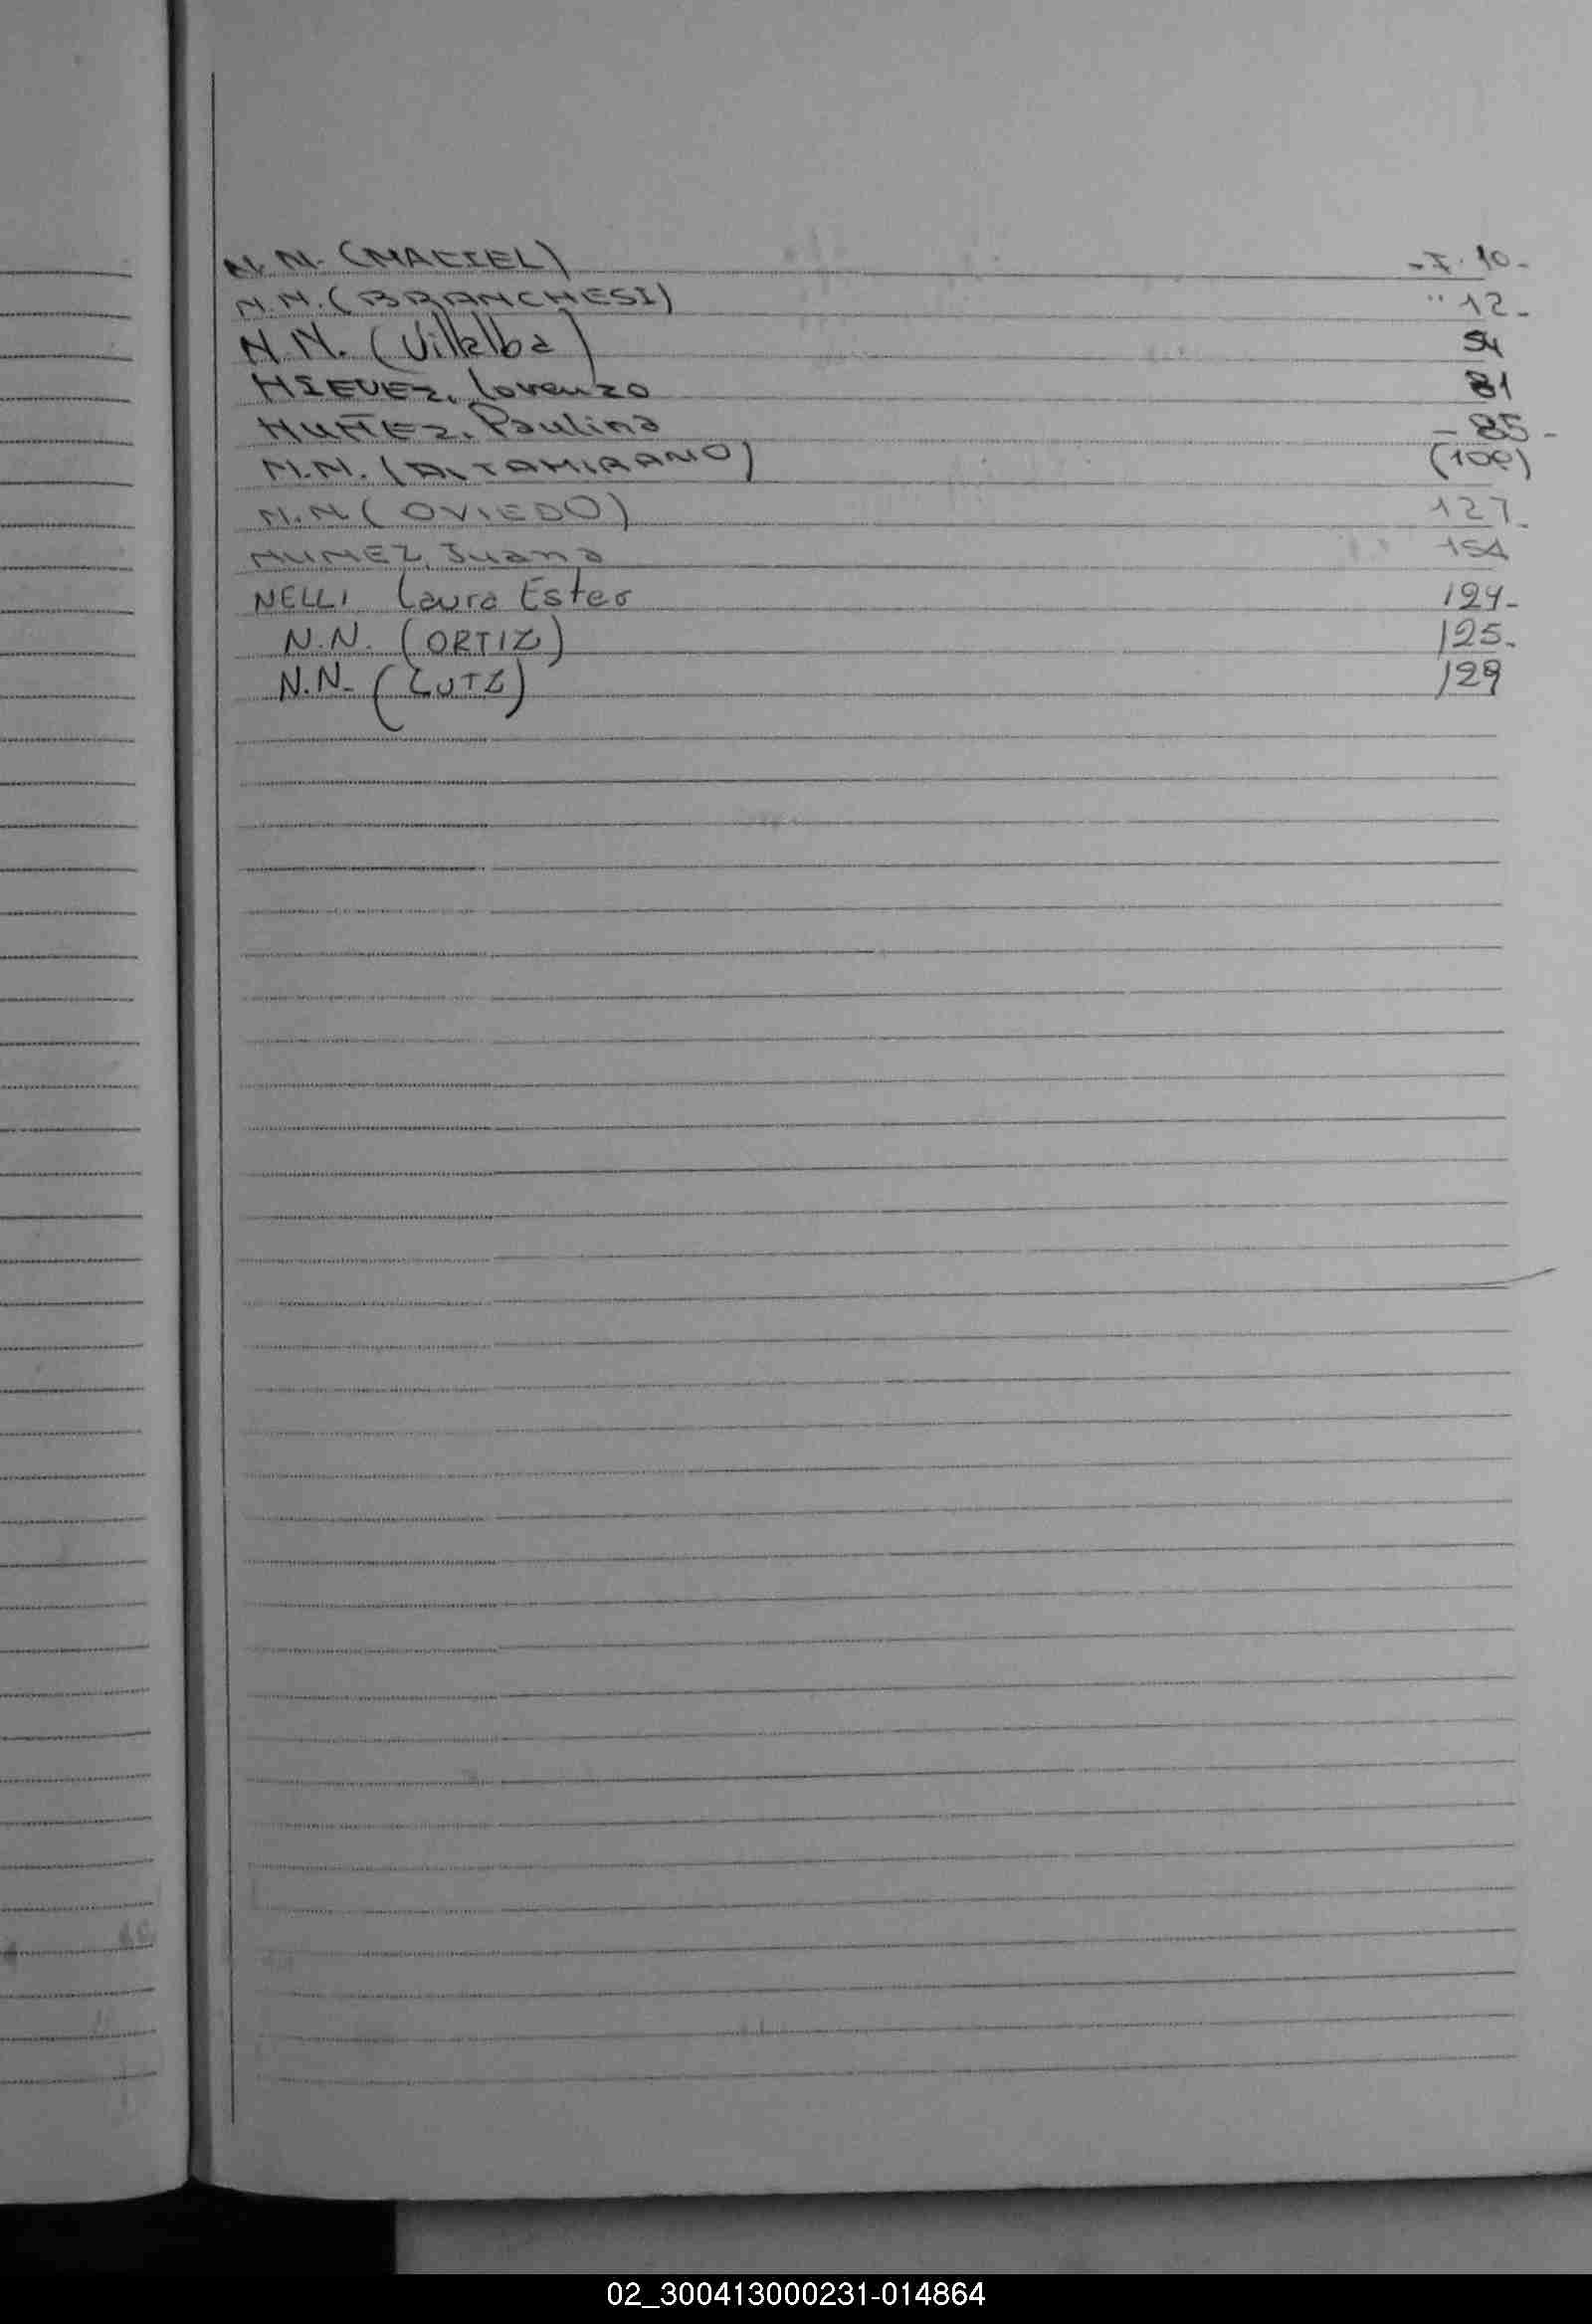 N.N. (MACIEL) - F. 10 -
N.N. (BRANCHESI) " 12 -
N N. (Villalba) 54
NIEVEZ, Lorenzo 81
NUÑEZ, Paulina - 85 -
N.N. (ALTAMIRANO) (100)
N.N (OVIEDO) 127.
NUNEZ, Juana 154
NELLI Laura Ester 124-
N.N. (ORTIZ) 125.
N.N- (LUTZ) 129
02_300413000231-014864